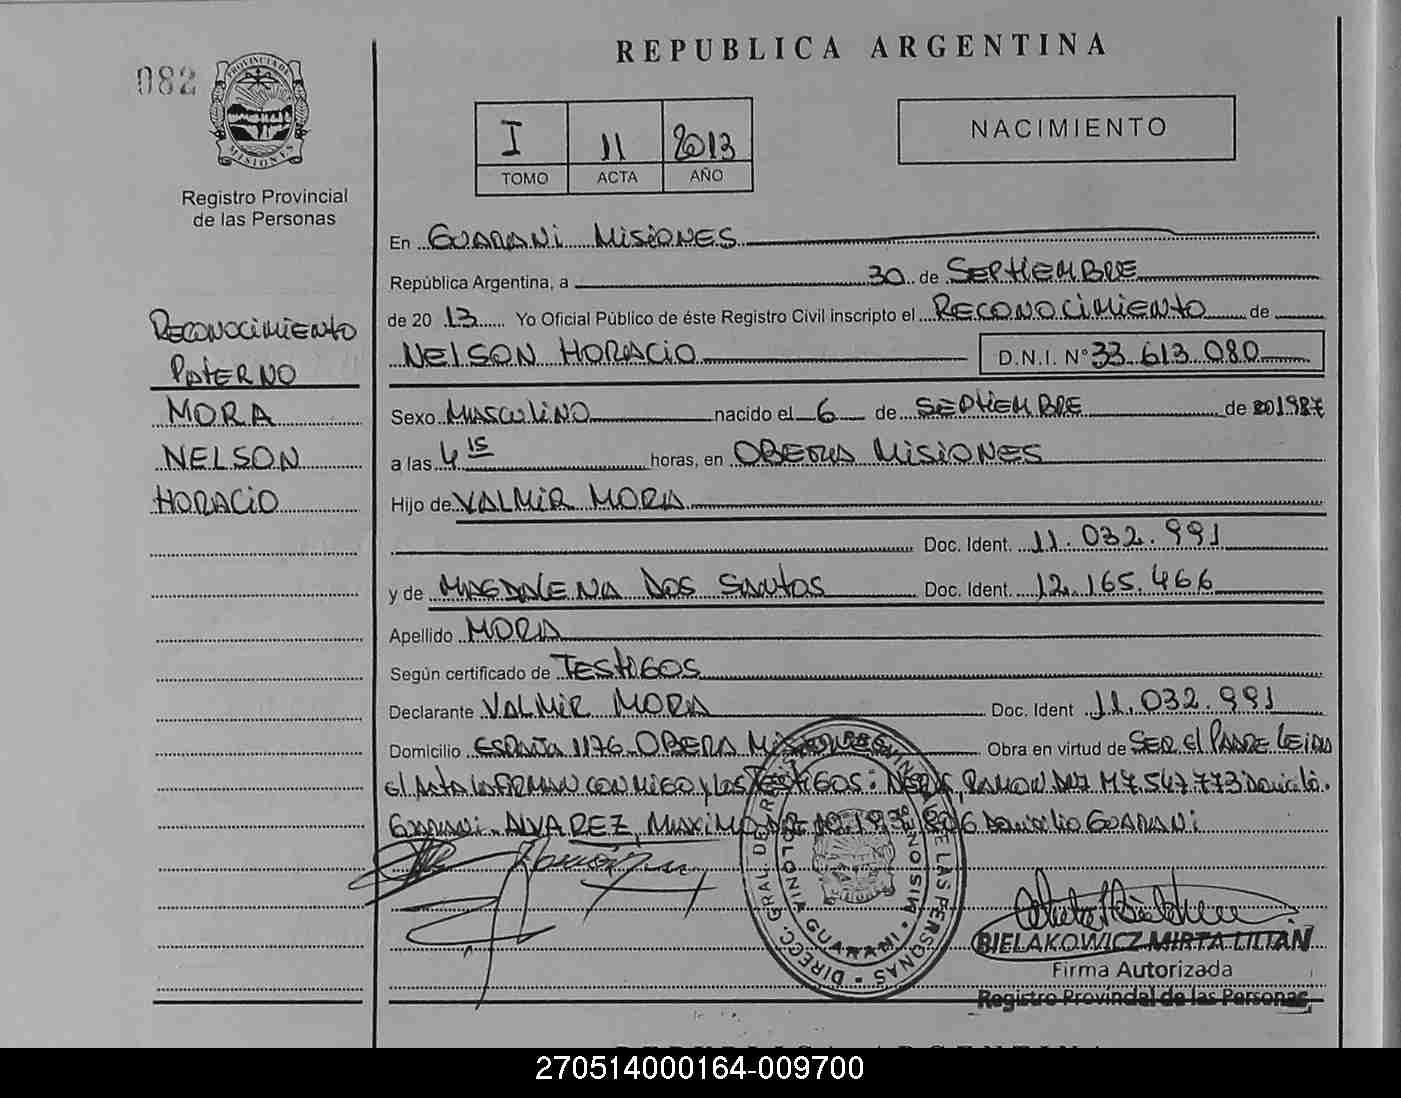 082
PROVINCIA DE
MISIONES
Registro Provincial
de las Personas
RECONOCIMIENTO
PATERNO
MORA
NELSON
HORACIO
REPUBLICA ARGENTINA
I 11 2013
TOMO ACTA AÑO
NACIMIENTO
En GUARANI MISIONES
República Argentina, a 30 de SEPTIEMBRE
de 20 13 Yo Oficial Público de éste Registro Civil inscripto el RECONOCIMIENTO de
NELSON HORACIO D.N.I. N° 33 613 080
Sexo MASCULINO nacido el 6 de SEPTIEMBRE de 1987
a las 4 15 horas, en OBERA MISIONES
Hijo de VALMIR MORA
Doc. Ident. 11.032.991
y de MAGDALENA DOS SANTOS Doc. Ident. 12.165.466
Apellido MORA
Según certificado de TESTIGOS
Declarante VALMIR MORA Doc. Ident 11.032.991
Domicilio ESPAÑA 1176 OBERA MISIONES Obra en virtud de SER El PADRE LEIDA
el Acta la FIRMAN CONMIGO y Los TESTIGOS: RAMON DNI M7.547.773 Domicilio
GUARANI ALVAREZ, MAXIMO Domicilio GUARANI
DIRECC. GRAL. DE REG. PROVINCIAL DE LAS PERSONAS
COLONIA GUARANI - MISIONES
BIELAKOWICZ MIRTA LILIAN
Firma Autorizada
Registro Provincial de las Personas
270514000164-009700